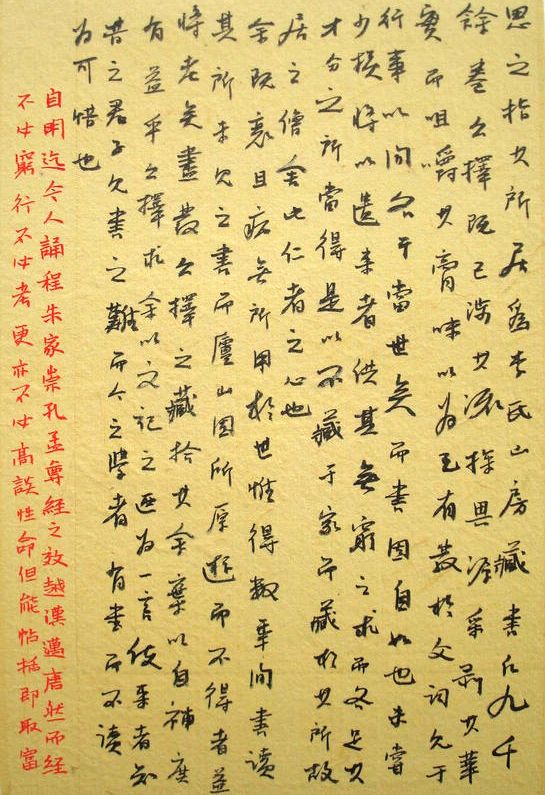 思之指其所居為李氏山房藏書凡九千
餘卷公擇既已涉其流探其源采剝其華
實而咀嚼其膏味以為己有發於文詞見于
行事以聞名于當世矣而書固自如也未嘗
少損將以遺來者供其無窮之求而各足其
才分之所當得是以不藏于家而藏於其所故
居之僧舍此仁者之心也
余既衰且病無所用於世惟得數年間書讀
其所未見之書而廬山固所原遊而不得者蓋
將老矣盡發公擇之藏拾其余棄以自補庶
有益乎公擇求余以文記之乃為一言使來者知
昔之君子見書之難而今之學者有書而不讀
為可惜也
自明迄今人誦程朱家崇孔孟尊經之效越漢邁唐然而經
不必窮行不必考更亦不必高談性命但能帖括即取富